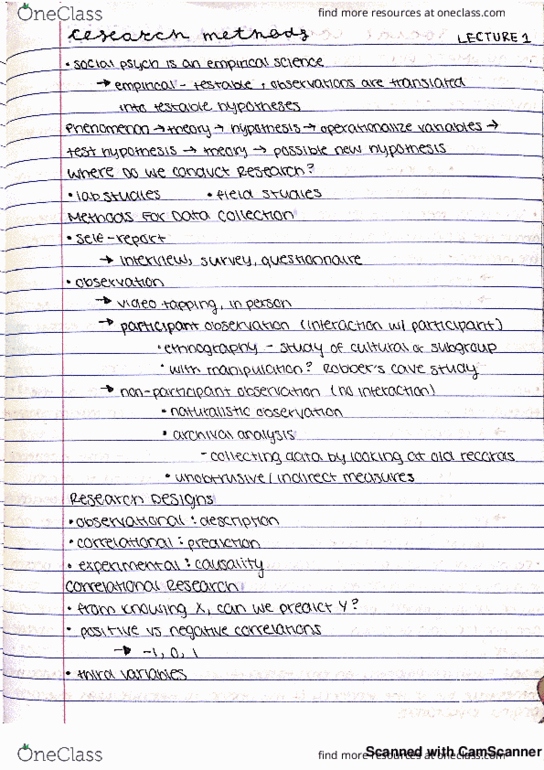 OneClass
find more resources at oneclass.com
research methods
LECTURE 1
• social psych is an empirical science
→ empirical - testable, observations are translated
into testable hypotheses
Phenomenon → theory → hypothesis → operationalize variables →
test hypothesis → theory → possible new hypothesis
Where do we conduct Research?
• lab studies • field studies
Methods For Data Collection
• self-report
→ interview, survey, questionnaire
• observation
→ video tapping, in person
→ participant observation (interaction w/ participant)
• ethnography - study of cultural or subgroup
• with manipulation? Robber's cave study
→ non-participant observation (no interaction)
• naturalistic observation
• archival analysis
- collecting data by looking at old records
• unobtrusive/indirect measures
Research Designs
• observational : description
• correlational : prediction
• experimental : causality
Correlational Research
• from knowing X, can we predict Y?
• positive vs negative correlations
→ -1, 0, 1
• third variables
OneClass
find more resources at oneclass.com
Scanned with CamScanner